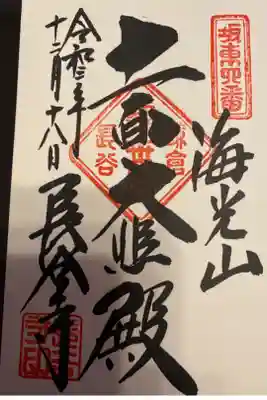 坂東四番
海光山
鎌倉
長谷
十一面大悲殿
令和三年
十二月十八日
長谷寺